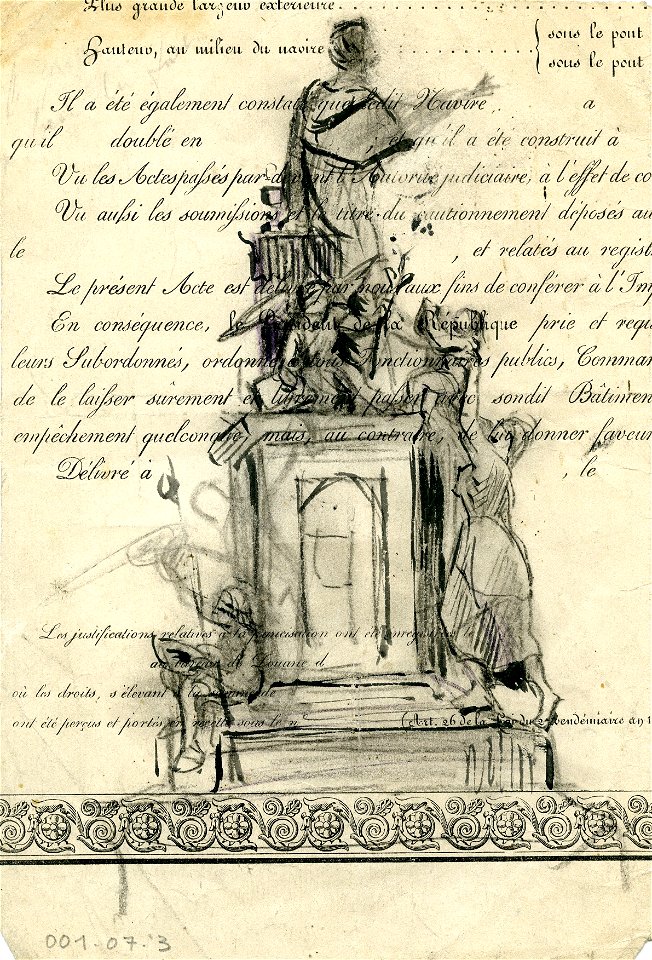 Plus grande largeur extérieure
Hauteur, au milieu du navire { sous le pont
sous le pont
Il a été également constaté que ledit Navire, a
qu'il doublé en , et qu'il a été construit à
Vu les Actes passés par-devant l'Autorité judiciaire, à l'effet de co
Vu aussi les soumissions et le titre du cautionnement déposés au
le , et relatés au regist
Le présent Acte est délivré par nous aux fins de conférer à l'Im
En conséquence, le Président de la République prie et requ
leurs Subordonnés, ordonne à tous Fonctionnaires publics, Comman
de le laisser sûrement et librement passer avec sondit Bâtimen
empêchement quelconque, mais, au contraire, de lui donner faveur
Délivré à , le
Les justifications relatives à la francisation ont été enregistrées le
au bureau de Douane d
où les droits, s'élevant à la somme de
ont été perçus et portés en recette sous le n° (Art. 26 de la Loi du 27 vendémiaire an
001-07-3